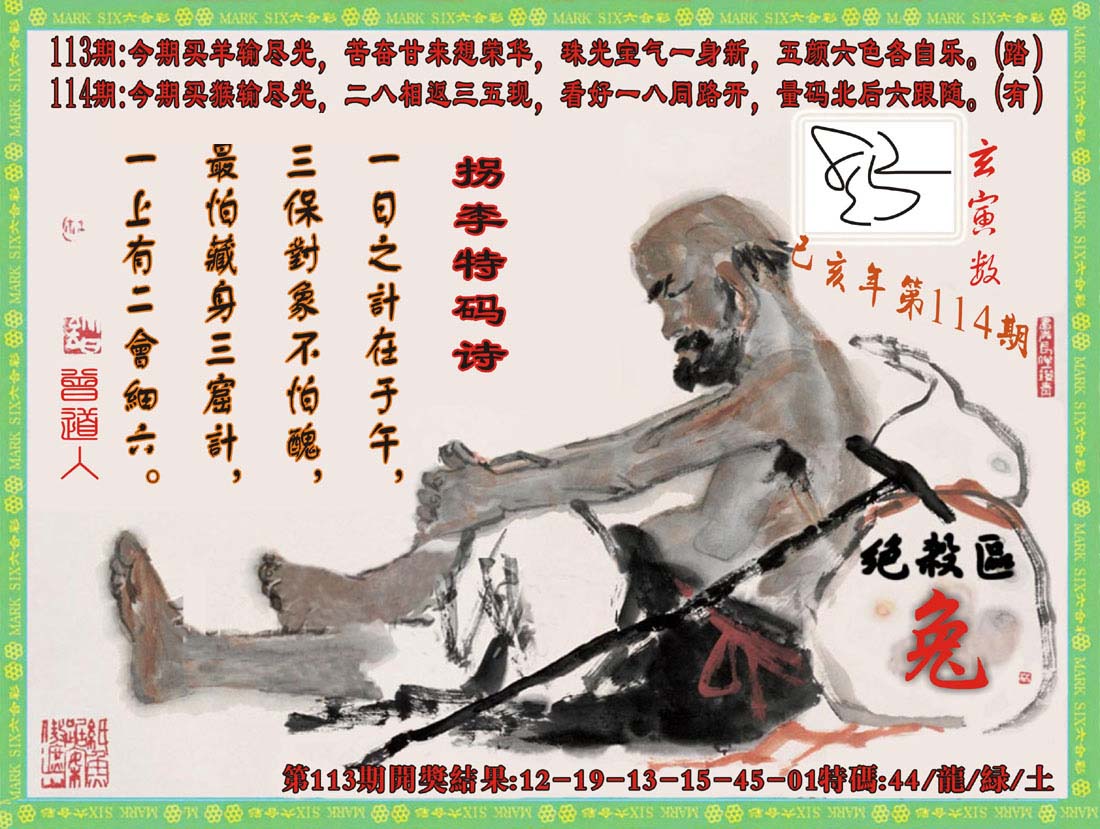 MARK SIX六合彩 MARK SIX六合彩 MARK SIX六合彩 MARK SIX六合彩 MARK SIX六合彩 MARK SIX六合彩
113期:今期买羊输尽光，苦奋甘来想荣华，珠光宝气一身新，五颜六色各自乐。(踏)
114期:今期买猴输尽光，二八相返三五现，看好一八同路开，量码北后六跟随。(有)
玄寅数
己亥年第114期
拐李特码诗
一日之計在于午，
三保對象不怕醜，
最怕藏身三窟計，
一上有二會細六。
曾道人
绝殺區
兔
第113期開獎結果:12-19-13-15-45-01特碼:44/龍/緑/土